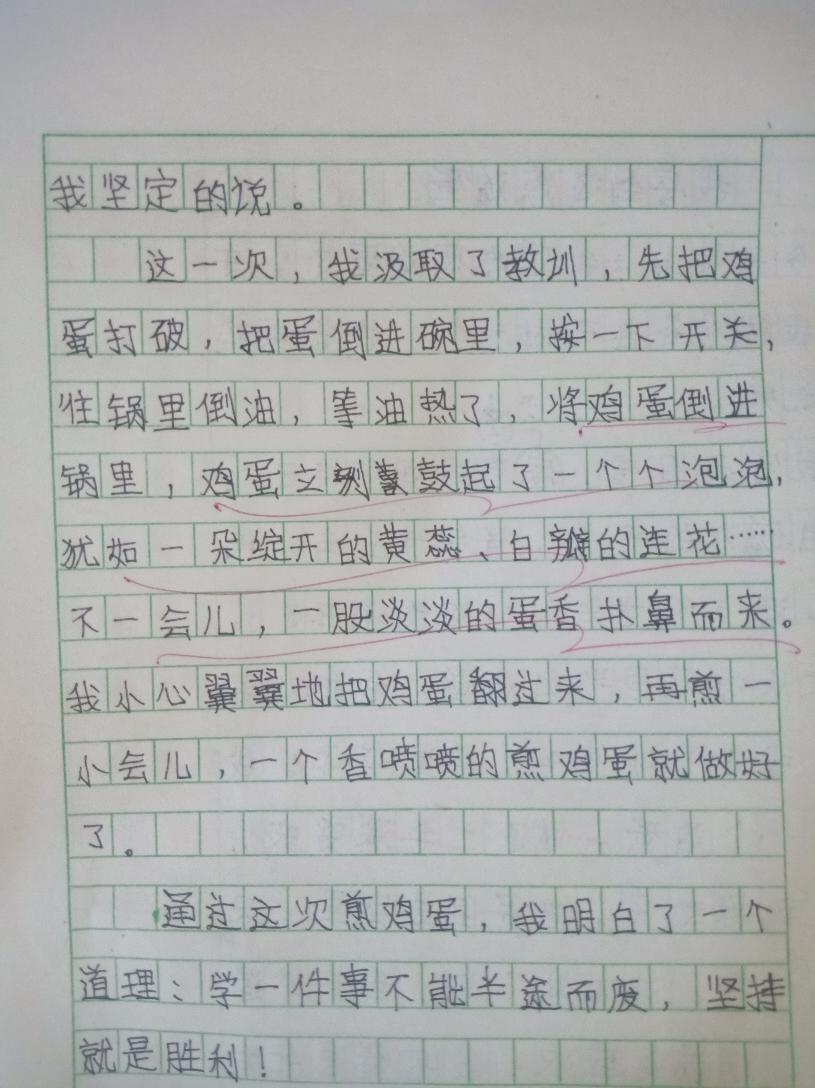 我坚定的说。
这一次，我汲取了教训，先把鸡
蛋打破，把蛋倒进碗里，按一下开关，
往锅里倒油，等油热了，将鸡蛋倒进
锅里，鸡蛋立刻鼓起了一个个泡泡，
犹如一朵绽开的黄蕊、白瓣的莲花……
不一会儿，一股淡淡的蛋香扑鼻而来。
我小心翼翼地把鸡蛋翻过来，再煎一
小会儿，一个香喷喷的煎鸡蛋就做好
了。
通过这次煎鸡蛋，我明白了一个
道理：学一件事不能半途而废，坚持
就是胜利！